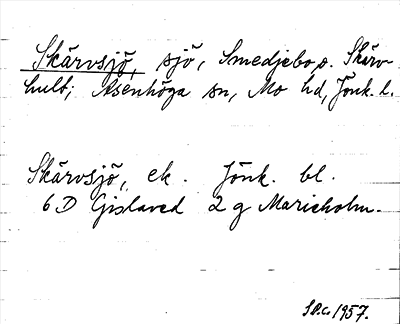 Skärvsjö, sjö, Smedjebo, o. Skärv-
hult; Åsenhöga sn, Mo hd, Jönk. l.
Skärvsjö, ek. Jönk. bl.
6D Gislaved 2g Marieholm.
1957.